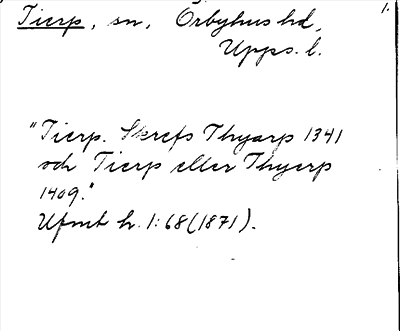 Tierp, sn, Örbyhus hd, 1.
Upps. l.
"Tierp. Skrefs Thyarp 1341
och Tierp eller Thyerp
1409."
Ufmt h. 1:68 (1871).